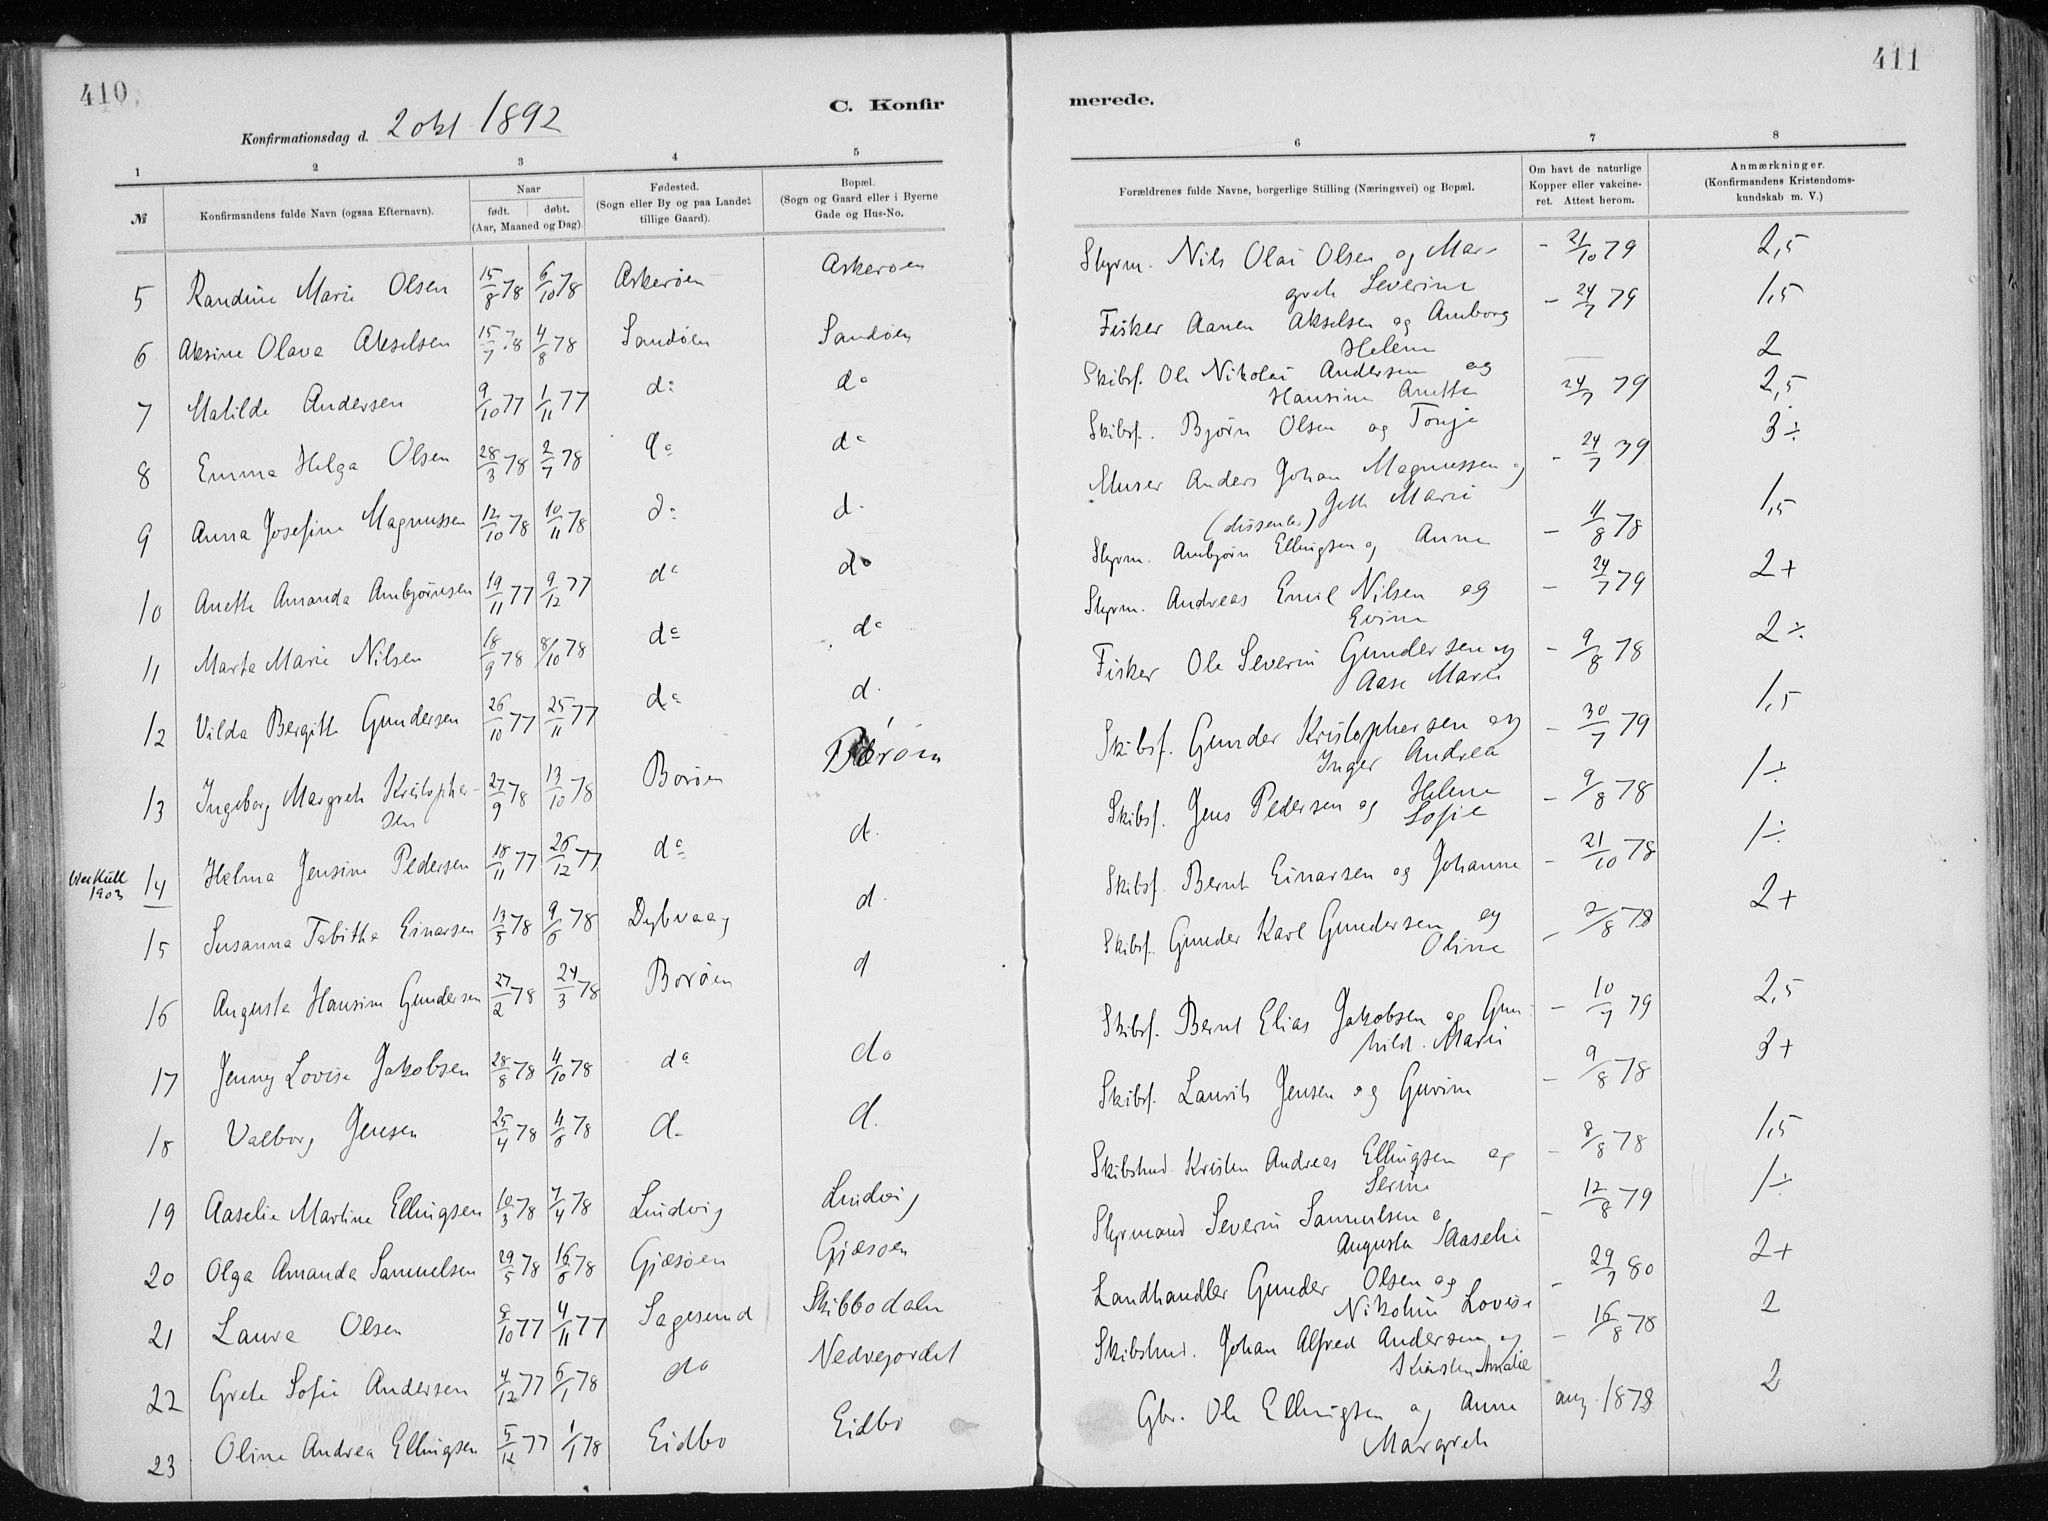 410
411
C. Konfirmerede.
Konfirmationsdag d. 2 okt 1892
1 2 3 4 5 6 7 8
№
Konfirmandens fulde Navn (ogsaa Efternavn).
Naar
født. døbt.
(Aar, Maaned og Dag).
Fødested.
(Sogn eller By og paa Landet
tillige Gaard).
Bopæl.
(Sogn og Gaard eller i Byerne
Gade og Hus-No.
Forældrenes fulde Navne, borgerlige Stilling (Næringsvei) og Bopæl.
Om havt de naturlige
Kopper eller vakcine-
ret. Attest herom.
Anmærkninger.
(Konfirmandens Kristendoms-
kundskab m. V.)
5 Randine Marie Olsen 15/8 78 6/10 78 Askerøen Askerøen Styrm. Nils Olai Olsen og Mar-
grete Severine - 21/10 79 2,5
6 Aksine Olava Akselsen 15/7 78 4/8 78 Sandøen Sandøen Fisker Aanen Akselsen og Amborg
Helene - 24/7 79 1,5
7 Matilde Andersen 9/10 77 1/11 77 do do Skibsf. Ole Nikolai Andersen og
Hansine Anette — 2
8 Emma Helga Olsen 28/3 78 2/7 78 do do Skibsf. Bjørn Olsen og Tonje 24/7 79 2,5
9 Anna Josefine Magnussen 12/10 78 10/11 78 do d. Murer Anders Johan Magnussen og
(dissenter) Gette Marie - 24/7 79 3÷
10 Anette Amanda Ambjørnsen 19/11 77 9/12 77 do do Styrm. Ambjørn Ellingsen og Anne - 11/8 78 1,5
11 Marta Marie Nilsen 18/9 78 8/10 78 do do Styrm. Andreas Emil Nilsen og
Evine - 24/7 79 2+
12 Vilda Bergitte Gundersen 26/10 77 25/11 77 do d. Fisker Ole Severin Gundersen og
Aase Marie - 9/8 78 2÷
13 Ingeborg Margrete Kristopher-
sen 27/9 78 13/10 78 Borøen Borøen Skibsf. Gunder Kristophersen og
Inger Andrea - 30/7 79 1,5
1903
14 Helma Jensine Pedersen 18/11 77 26/12 77 do d. Skibsf. Jens Pedersen og Helene
Sofie - 9/8 78 1÷
15 Susanna Tabitha Einarsen 13/5 78 9/6 78 Dybvaag d. Skibsf. Bernt Einarsen og Johanne - 21/10 78 1÷
16 Augusta Hansine Gundersen 27/2 78 24/3 78 Borøen d Skibsf. Gunder Karl Gundersen og
Oline - 2/8 78 2+
17 Jenny Lovise Jakobsen 28/8 78 4/10 78 do do Skibsf. Bernt Elias Jakobsen og Gun-
hild Marie - 10/7 79 2,5
18 Valborg Jensen 25/4 78 4/6 78 d. d. Skibsf. Laurits Jensen og Gurine - 9/8 78 3+
19 Aaselie Martine Ellingsen 10/3 78 7/4 78 Lindvig Lindvig Skibstmd. Kristen Andreas Ellingsen og
Serine - 8/8 78 1,5
20 Olga Amanda Samuelsen 29/5 78 16/6 78 Gjæsøen Gjæsøen Styrmand Severin Samuelsen o
Augusta Aaselie - 12/8 79 1÷
21 Laura Olsen 8/10 77 4/11 77 Sagesund Skibbodalen Landhandler Gunder Olsen og
Nikoline Lovise - 29/7 80 2+
22 Grete Sofie Andersen 4/12 77 6/1 78 do Nedvejordet Skibstmd. Johan Alfred Andersen og
Kirsten Amalie - 16/8 78 2
23 Oline Andrea Ellingsen 5/12 77 1/1 78 Eidbo Eidbo Gbr. Ole Ellingsen og Anne
Margrete aug. 1878 2